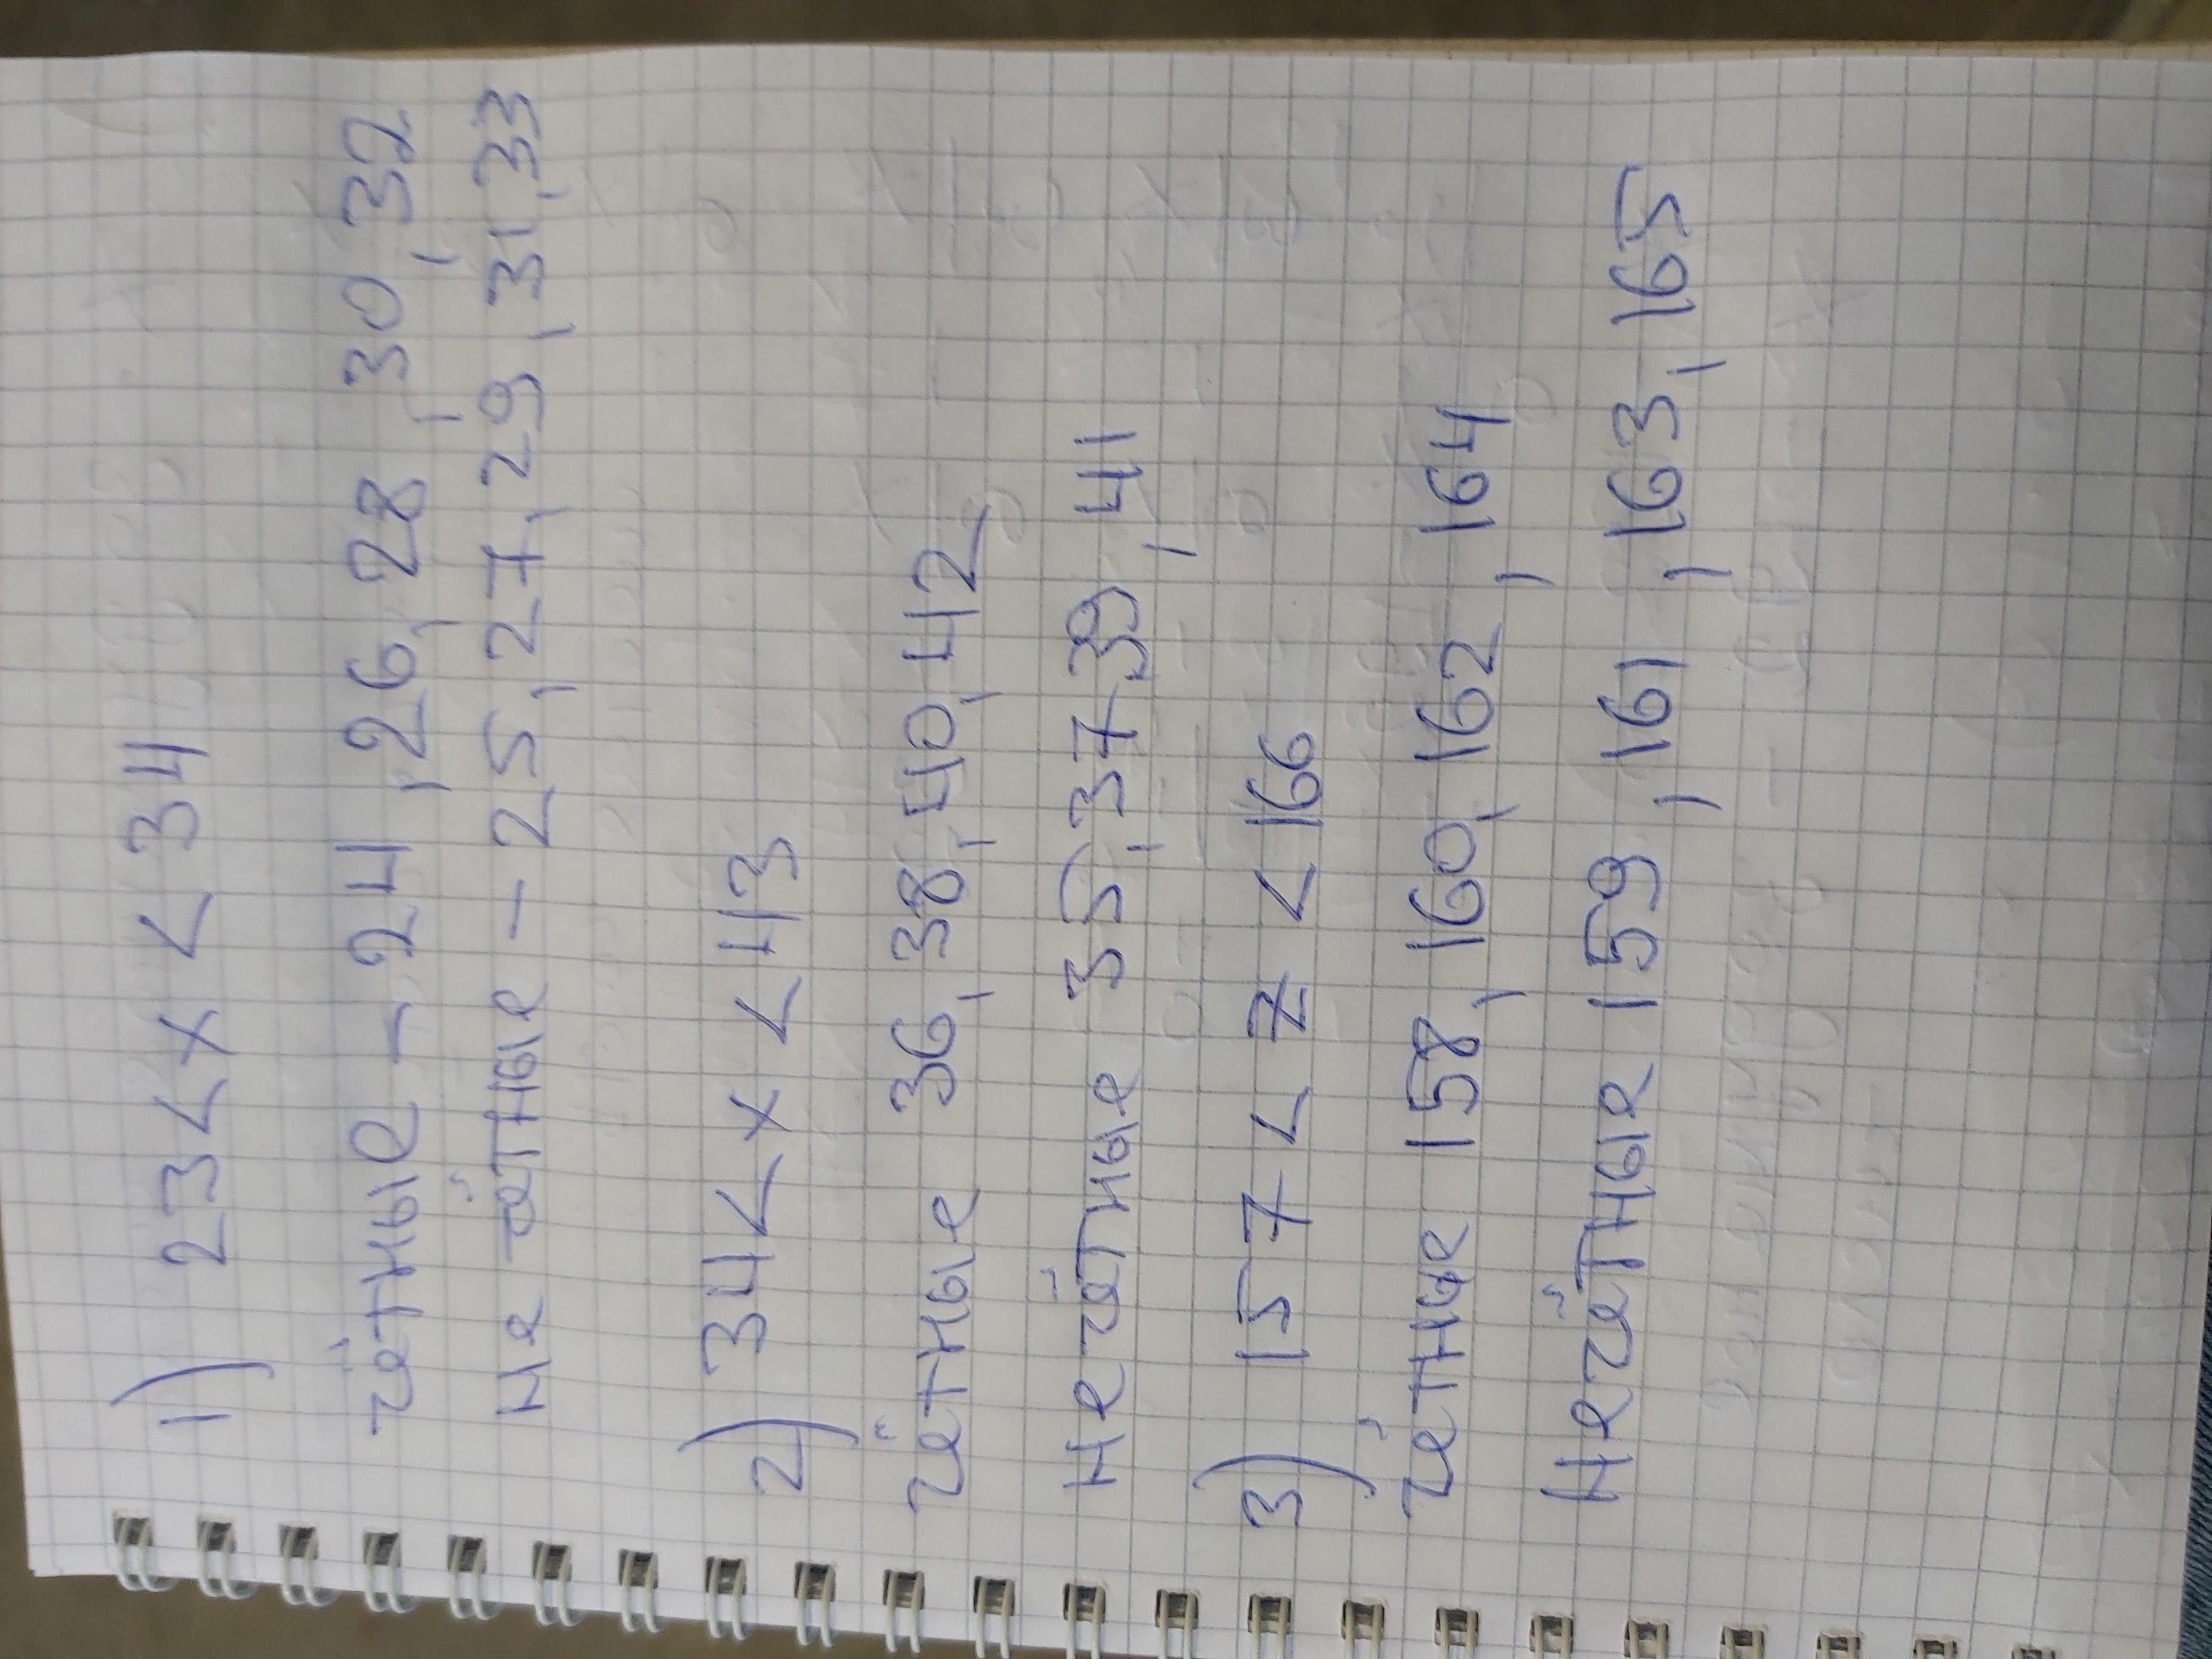 1) 23 < x < 34
чётные - 24, 26, 28, 30, 32
не чётные - 25, 27, 29, 31, 33
2) 34 < x < 43
чётные 36, 38, 40, 42
нечётные 35, 37, 39, 41
3) 157 < z < 166
чётные 158, 160, 162, 164
Нечётные 159, 161, 163, 165